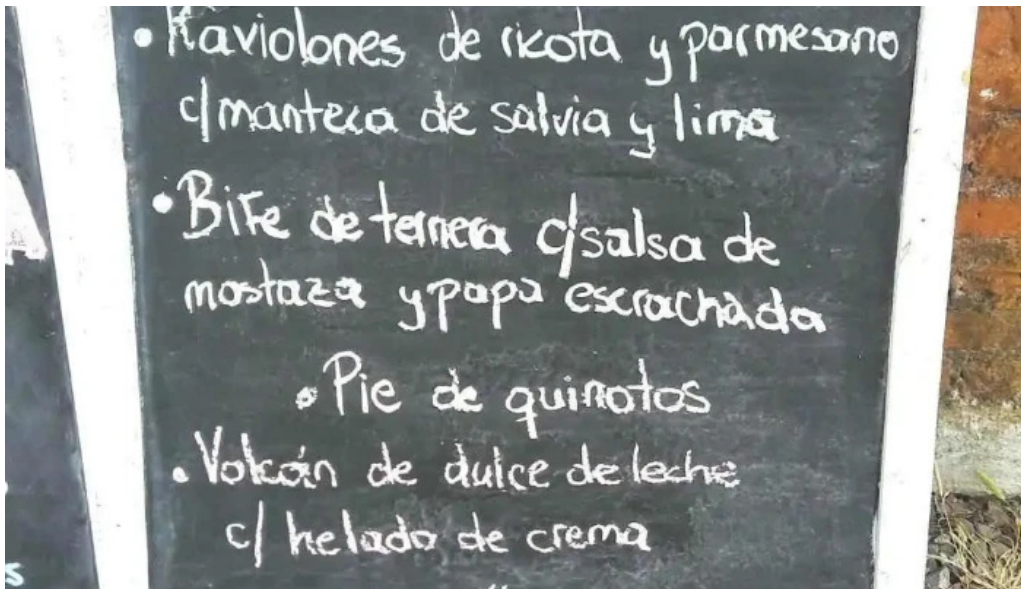 • Raviolones de ricota y parmesano
c/manteca de salvia y lima
• Bife de ternera c/salsa de
mostaza y papa escrachada
• Pie de quinotos
• Volcán de dulce de leche
c/ helado de crema
s